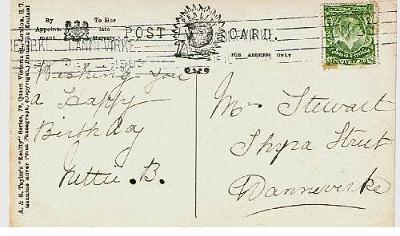 By Appointment
To Her late Majesty
POST CARD.
FOR ADDRESS ONLY
Wishing You
a Happy
Birthday
Nettie. B.
Mr Stewart
Street
Dannevirke
A. & G. Taylor's "Reality" Series, 70, Queen Victoria St., London, E.C.